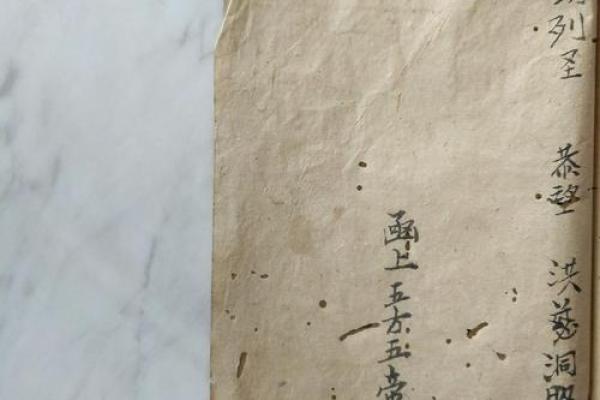 列圣 恭望 洪慈洞照
函上五方五帝